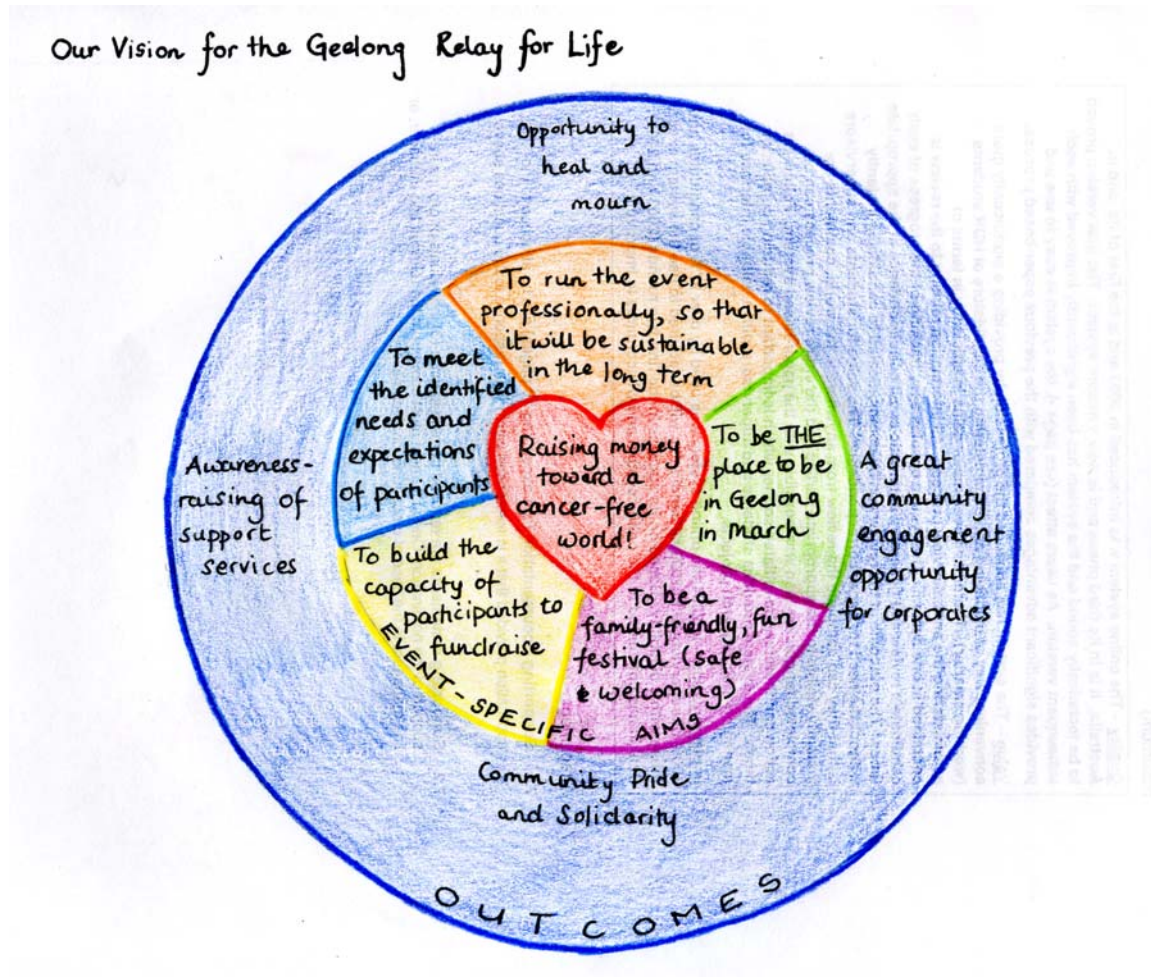 Our Vision for the Geelong Relay for Life
Opportunity to
heal and
mourn
To run the event
professionally, so that
it will be sustainable
in the long term
To meet
the identified
needs and
expectations
of participants
Raising money
toward a
cancer-free
world!
To be THE
place to be
in Geelong
in March
Awareness-
raising of
support
services
A great
community
engagement
opportunity
for corporates
To build the
capacity of
participants to
fundraise
To be a
family-friendly, fun
festival (safe
& welcoming)
EVENT-SPECIFIC AIMS
Community Pride
and Solidarity
OUTCOMES